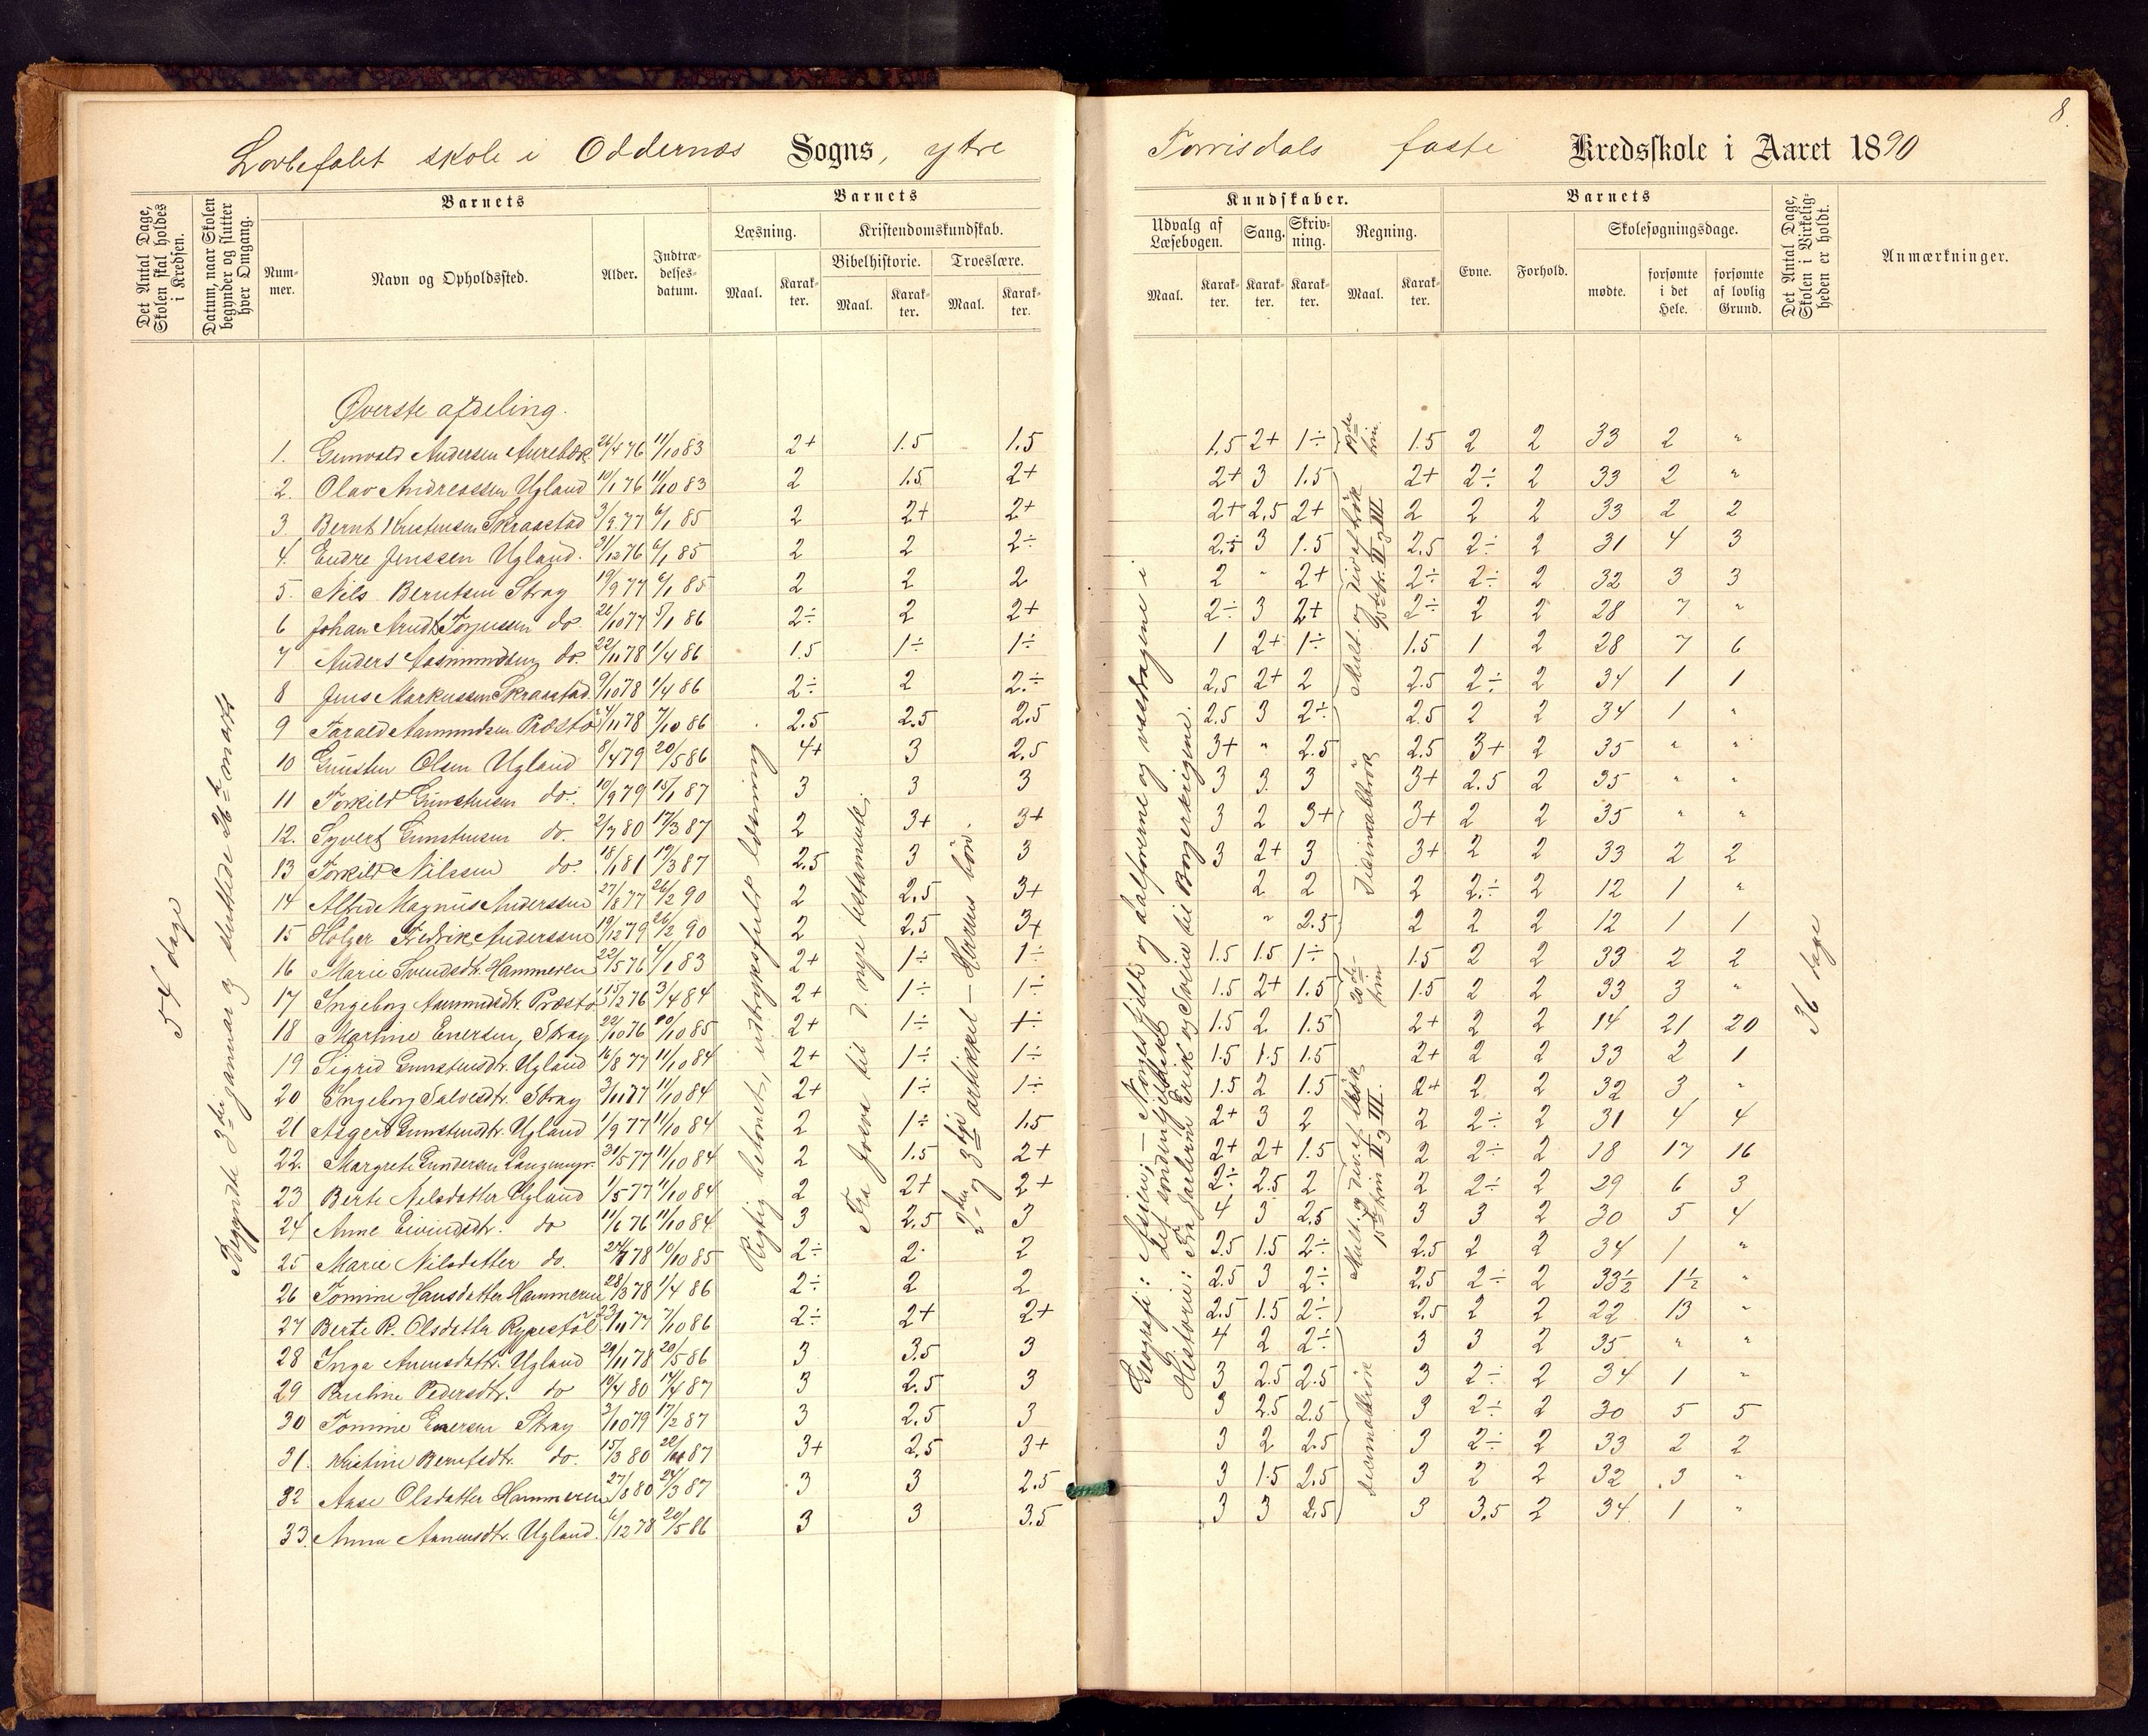 8
Lovbefalet skole i Oddernæs Sogns, ytre Torrisdals faste Kredsskole i Aaret 1890
Det Antal Dage, Skolen skal holdes i Kredsen.
Datum, naar Skolen begynder og slutter hver Omgang.
Barnets
Nummer.
Navn og Opholdssted.
Alder.
Indtrædelsesdatum.
Barnets
Læsning.
Maal.
Karakter.
Kristendomskundskab.
Bibelhistorie.
Maal.
Karakter.
Troeslære.
Maal.
Karakter.
Kundskaber.
Udvalg af Læsebogen.
Maal.
Karakter.
Sang.
Karakter.
Skrivning.
Karakter.
Regning.
Maal.
Karakter.
Barnets
Evne.
Forhold.
Skolesøgningsdage.
mødte.
forsømte i det Hele.
forsømte af lovlig Grund.
Det Antal Dage, Skolen i Virkeligheden er holdt.
Anmærkninger.
54 dage
Begyndte 3die januar og sluttede 26de marts
Øverste afdeling.
1. Gunvald Andersen 26/4 76 11/10 83 2+ 1.5 1.5 1.5 2+ 1÷ 1.5 2 2 33 2 "
2. Olav Andreassen Ugland 10/1 76 11/10 83 2 1.5 2+ 2+ 3 1.5 2+ 2÷ 2 33 2 "
3. Bernt Kristensen Skraastad 3/9 77 6/1 85 2 2+ 2+ 2+ 2,5 2+ 2 2 2 33 2 2
4. Endre Jenssen Ugland. 31/12 76 6/1 85 2 2 2÷ 2,5 3 1.5 2,5 2÷ 2 31 4 3
5. Nils Berntsen Stray 19/9 77 6/1 85 2 2 2 2 " 2+ 2÷ 2÷ 2 32 3 3
6 Johan Arndt Torjussen do. 26/10 77 5/1 86 2÷ 2 2+ 2÷ 3 2+ 2÷ 2 2 28 7 "
7 Anders Aasmundsen do. 22/11 78 1/4 86 1.5 1÷ 1÷ 1 2+ 1÷ 1.5 1 2 28 7 6
8 Jens Markussen Skraastad 9/10 78 1/4 86 2÷ 2 2÷ 2,5 2+ 2 2.5 2÷ 2 34 1 1
9 Tarald Aamundsen Præstø 24/11 78 7/10 86 2.5 2.5 2,5 2.5 3 2÷ 2.5 2 2 34 1 "
10 Gunsten Olsen Ugland 8/4 79 20/5 86 4+ 3 2,5 3+ " 2.5 2.5 3+ 2 35 " "
11 Torkild Gunstensen do. 10/9 79 15/1 87 3 3 3 3 3 3 3+ 2.5 2 35 " "
12. Syvert Gunstensen do. 2/7 80 17/3 87 2 3+ 3+ 3 2 3+ 3+ 2 2 35 " "
13 Torkild Nilssen do. 18/1 81 19/3 87 2.5 3 3 3 2+ 3 3+ 2 2 33 2 2
14 Alfred Magnus Anderssen 27/8 77 26/2 90 2 2.5 3+ 2 2 2 2÷ 2 12 1 "
15 Holger Fredrik Anderssen 19/12 79 26/2 90 2 2.5 3+ " 2.5 2 2 2 12 1 1
16 Marie Svendsdtr. Hammeren 22/5 76 4/1 83 2+ 1÷ 1÷ 1.5 1.5 1÷ 1.5 2 2 33 2 2
17 Ingeborg Aamundsdtr. Præstø 15/2 76 3/4 84 2+ 1÷ 1÷ 1.5 2+ 1.5 1.5 2 2 33 3 "
18 Martine Enersen, Stray 22/10 76 10/10 85 2+ 1÷ 1÷ 1.5 2 1.5 2+ 2 2 14 21 20
19 Sigrid Gunstensdtr. Ugland 16/8 77 11/10 84 2+ 1÷ 1÷ 1.5 1.5 1.5 2+ 2 2 33 2 1
20 Ingeborg Salvesdtr. Stray 3/11 77 11/10 84 2+ 1÷ 1÷ 1.5 2 1.5 2+ 2 2 32 3 "
21 Asgerd Gunstensdtr. Ugland 1/9 77 11/10 84 2 1÷ 1.5 2+ 3 2 2 2÷ 2 31 4 4
22. Margrete Gundersen 31/5 77 11/10 84 2 1.5 2+ 2+ 2+ 1.5 2 2÷ 2 18 17 16
23 Berte Nilsdatter Ugland 1/5 77 11/10 84 2 2+ 2+ 2÷ 2.5 2 2 2÷ 2 29 6 3
24 Anne Eivindsdtr. do 11/6 76 11/10 84 3 2.5 3 4 3 2.5 3 3 2 30 5 4
25 Marie Nilsdatter do. 24/8 78 10/10 85 2÷ 2 2 2.5 1.5 2÷ 2.5 2 2 34 1 "
26 Tomine Hansdatter Hammeren 28/3 78 1/4 86 2÷ 2 2 2.5 3 2÷ 2,5 2÷ 2 33½ 1½ "
27 Berte R. Olsdatter Rypestøl 23/11 77 7/10 86 2÷ 2+ 2+ 2.5 1.5 2÷ 2.5 2 2 22 13 "
28 Inga Anensdatr. Ugland 29/11 78 20/5 86 3 3.5 3 4 2 2÷ 3 3 2 35 " "
29 Pauline Pedersdtr. do 10/4 80 14/4 87 3 2.5 3 3 2.5 2.5 3 2÷ 2 34 1 "
30 Tomine Enersen Stray 3/10 79 17/2 87 3 2.5 3 3 2.5 2.5 3 2÷ 2 30 5 5
31. Kristine Berntsdtr. do. 15/3 80 87 3+ 2.5 3+ 3 2 2.5 3 2÷ 2 33 2 2
32 Aase Olsdatter Hammeren 27/8 80 24/3 87 3 3 2.5 3 1.5 2.5 3 2 2 32 3 "
33. Anna Aanensdtr. Ugland. 6/12 78 20/5 86 3 3 3.5 3 3 2,5 3 3.5 2 34 1 "
Rigtig betonet, udtryksfuld læsning
Fra Josva til d. nye testamente.
2den og 3die artikkel – Herrens bøn.
Geografi: Asien; – Norges fjelde og dalførerne og vasdragene i
det søndenfjeldske
Historie: Fra Jarlerne Erik og Svein til Borgerkrigene.
19de trin.
Mult. og div. af brøk 15de tr. II og III
Decimalbrøk
20de trin
Mult. og div. af brøk 15de trin II og III.
decimalbrøk
36 dage